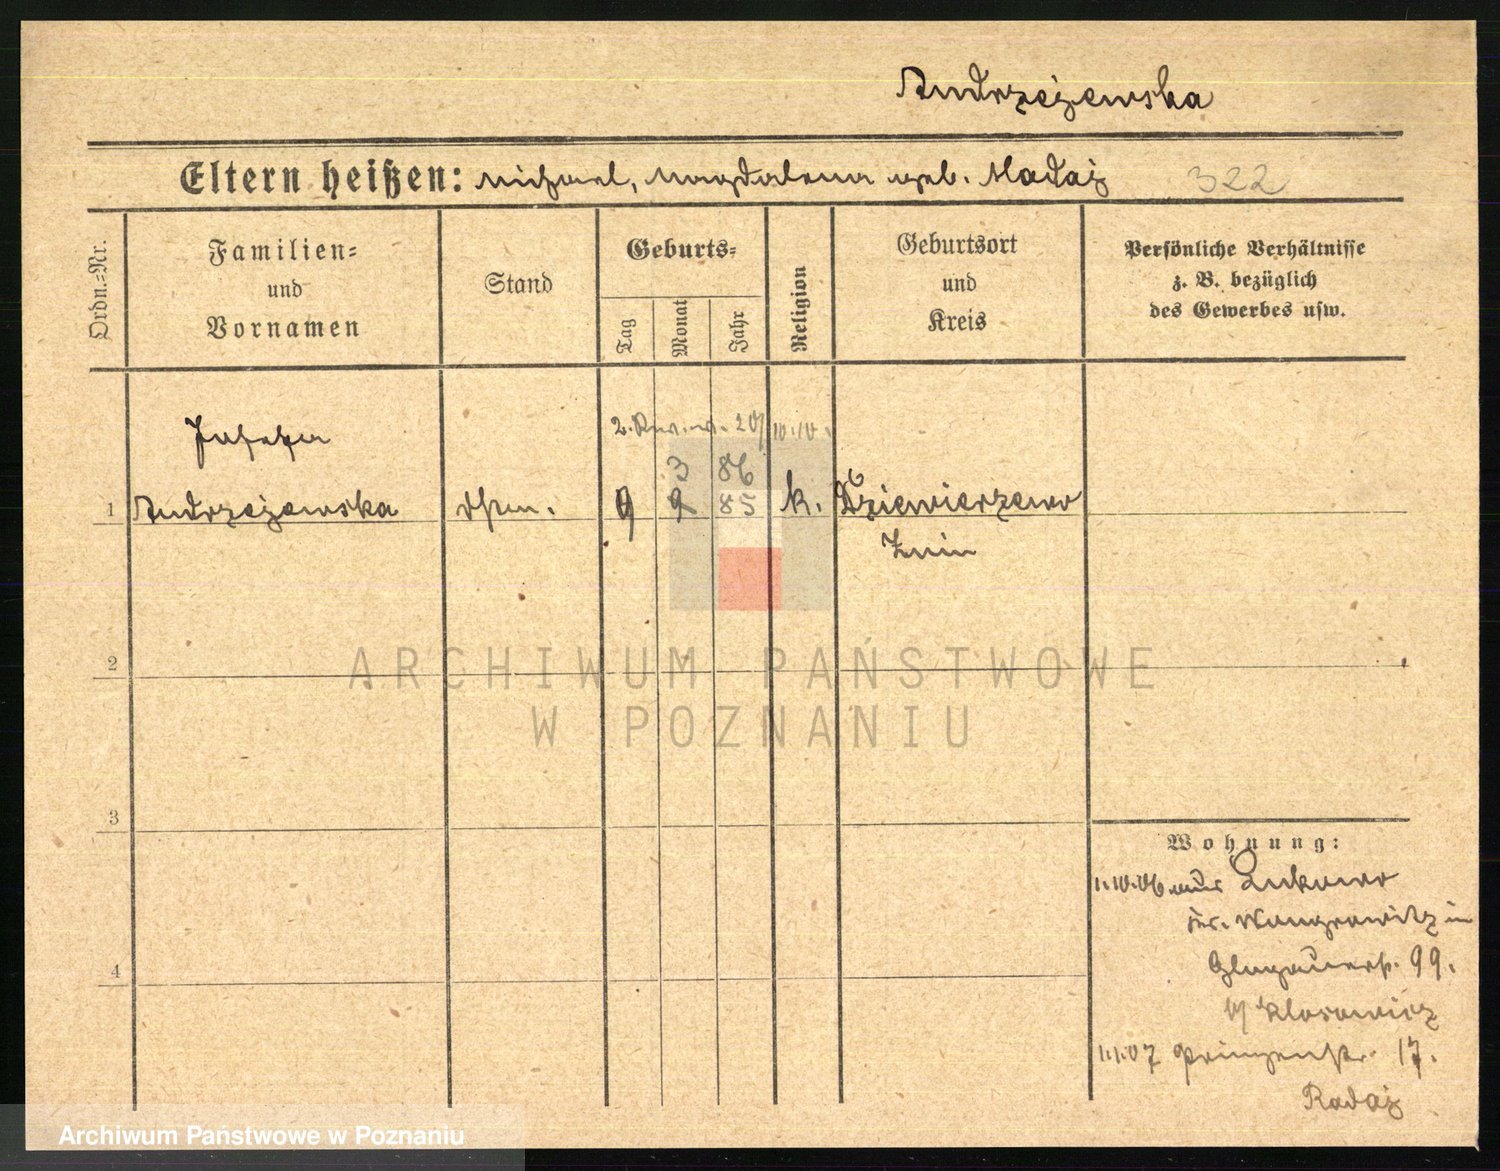 Andrzejewska
Eltern heißen: Michael, Magdalena geb. Madaj 322
Ordn.-Nr.
Familien-
und
Vornamen
Stand
Geburts-
Tag
Monat
Jahr
Religion
Geburtsort
und
Kreis
Persönliche Verhältnisse
z. B. bezüglich
des Gewerbes usw.
Josefa
3 86
1 Andrzejewska 9 9 85 k. Dziewierzewo
Znin
2
3
4
Wohnung:
1.10.06 aus Lukowo
Kr. Wongrowitz in
Glogauerstr. 99.
b/ Klosowicz
1.1.07 Prinzenstr. 17.
Radaj
ARCHIWUM PAŃSTWOWE
W POZNANIU
Archiwum Państwowe w Poznaniu